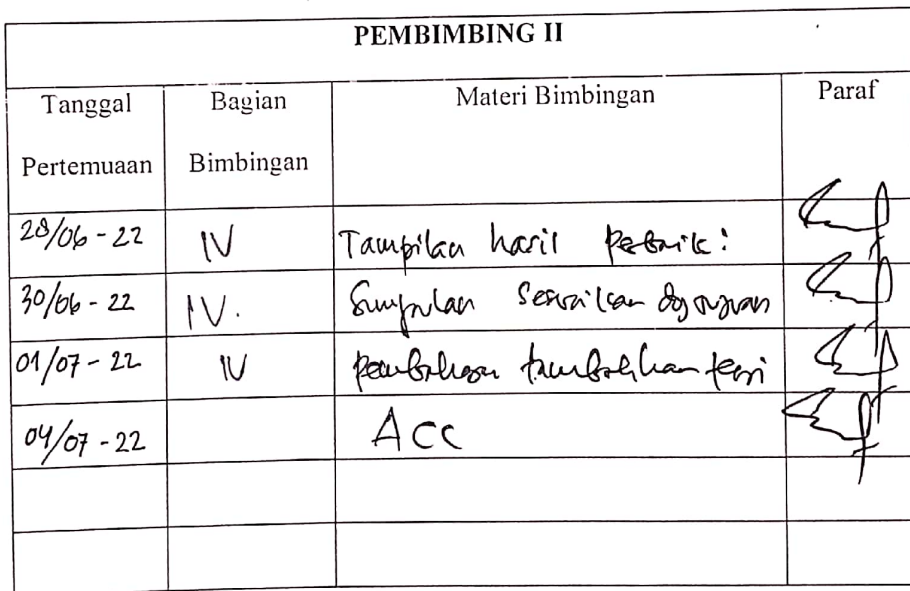 PEMBIMBING II
Tanggal Pertemuaan Bagian Bimbingan Materi Bimbingan Paraf
28/06 - 22 IV Tampilan hasil
30/06 - 22 IV. Simpulan Sesuaikan dg tujuan
01/07 - 22 IV pembahasan tambahkan teori
04/07 - 22 Acc